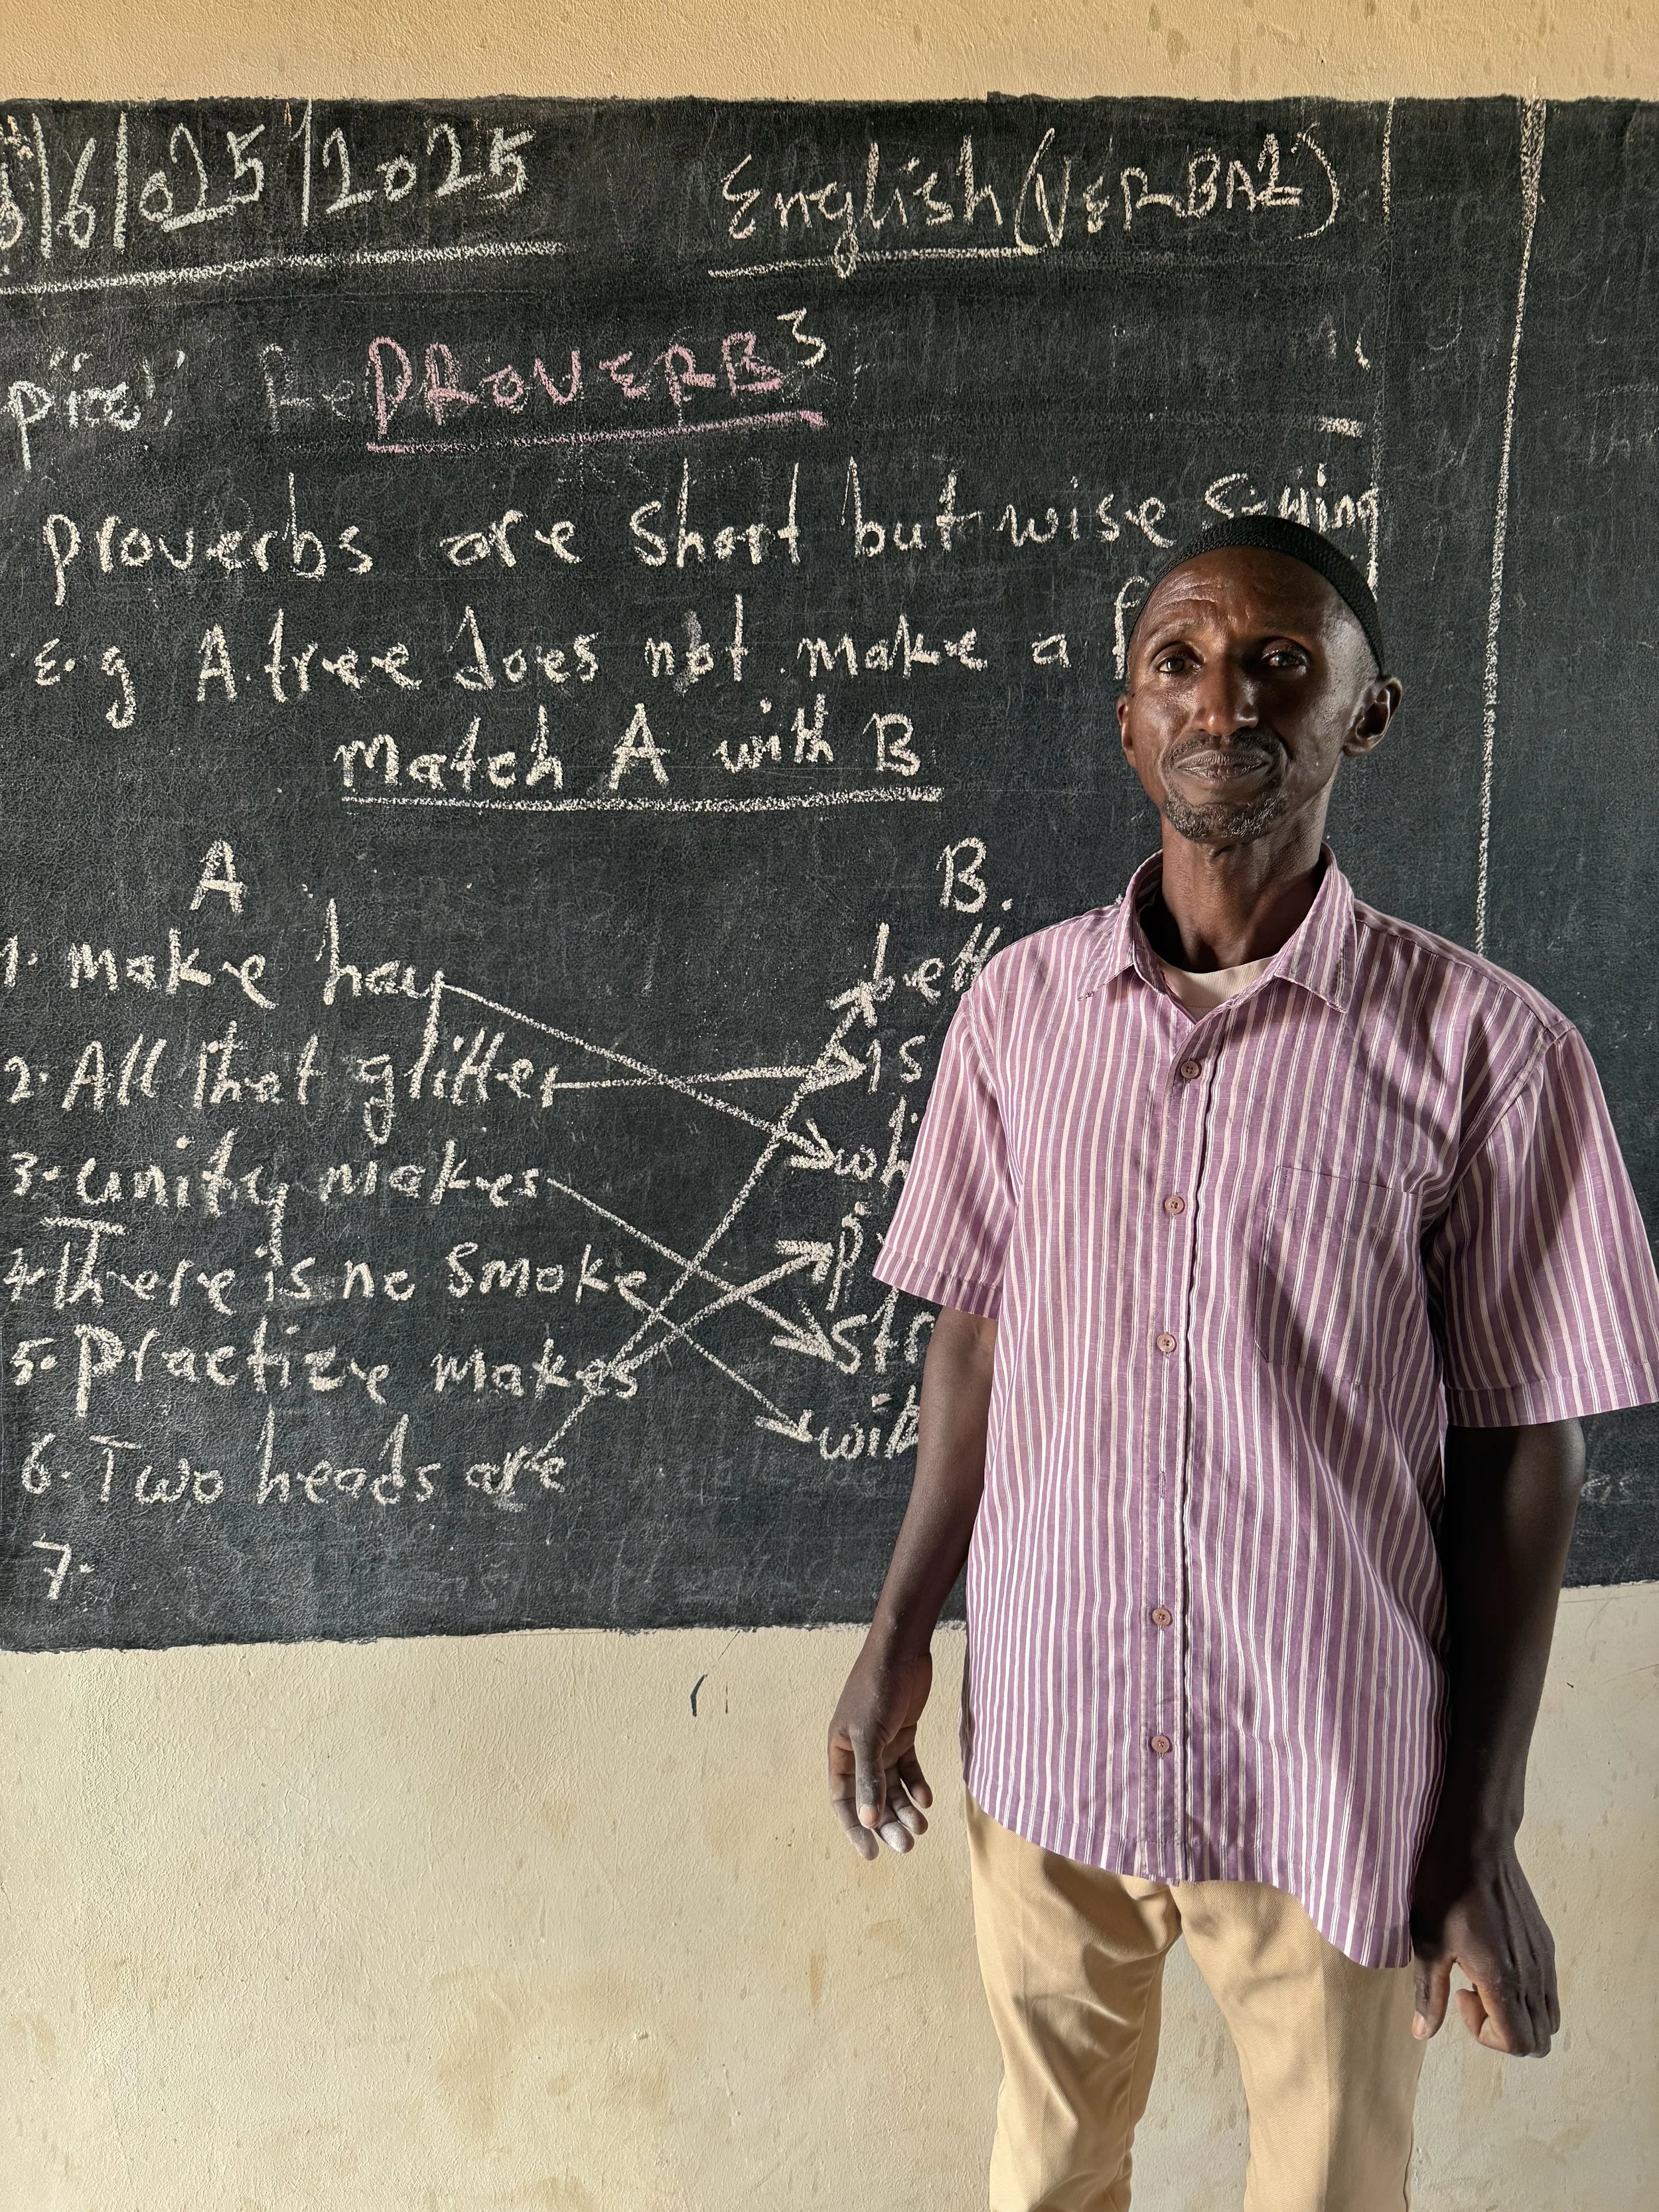 6/025/2025
English (VERBAL)
PROVERBS
proverbs are short but wise saying
E.g A tree does not make a
match A with B
A B.
1. make hay
2. All that glitter is
3. unity makes
4. There is no smoke
5. practize makes
6. Two heads are
7.